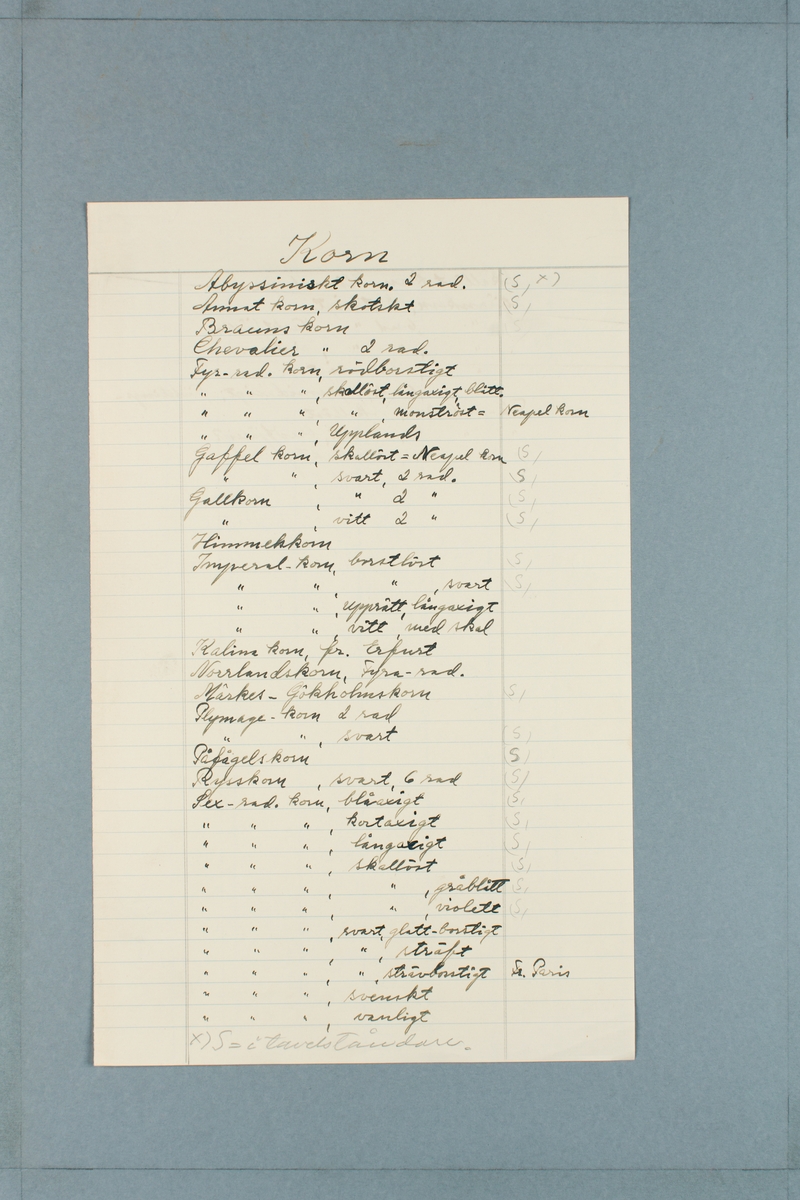 Korn
Abyssiniskt korn. 2 rad. (S, x)
Annat korn, skotskt (S,
Brauns korn
Chevalier " 2 rad.
Fyr-rad. korn, rödborstigt
" " ", skallöst, långaxigt, blått.
" " " , " , monströst = Neapel korn
" " ", Upplands
Gaffel korn, skallöst = Neapel korn (S,
" " , svart, 2 rad. (S,
Gallkorn , " 2 " (S,
" , vitt 2 " (S,
Himmelskorn
Imperal-korn, borstlöst (S,
" " " , svart (S,
" " , upprätt, långaxigt
" " , vitt, med skal
Kalina korn, fr. Erfurt
Norrlandskorn, Fyra-rad.
Märkes-Gökholmskorn (S,
Plymage-korn 2 rad
" " , svart (S,
Påfågelskorn (S)
Rysskorn , svart, 6 rad (S)
Sex-rad. korn, blåaxigt (S,
" " " , kortaxigt (S,
" " " , långaxigt (S,
" " " , skallöst (S,
" " " , " , gråblått (S,
" " " , " , violett (S,
" " " , svart, glatt-borstigt
" " " , " , sträft
" " " , " , strävborstigt Fr. Paris
" " " , svenskt
" " " , vanligt
x) S = i tavelståndare.